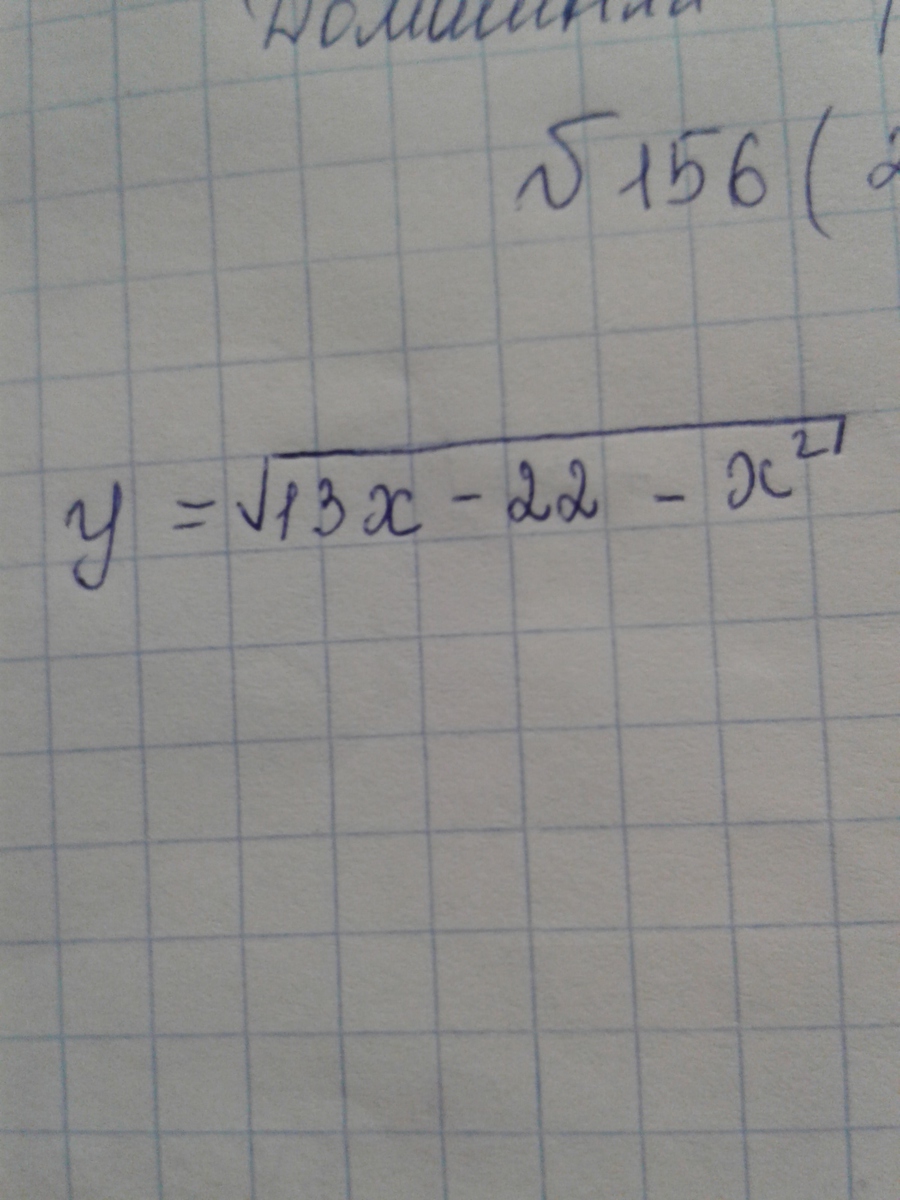 Домашняя
√156 (2
y = √13x - 22 - x²